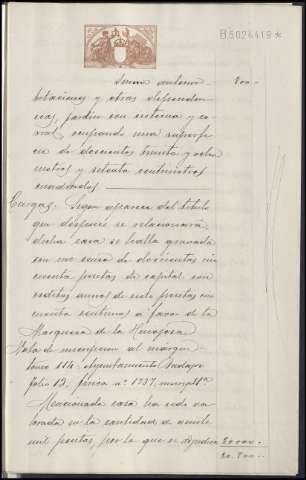 B5024419*
Suma anterior 800..
bitaciones y otras dependen-
cias, jardin con cisterna y co-
rral, ocupando una superfi-
cie de doscientos treinta y ocho
metros y setenta centimetros
cuadrados.
Cargas. Segun aparece del titulo
que despues se relacionará
dicha casa se halla gravada
con un censo de doscientas cin
cuenta pesetas de capital con
reditos anuos de siete pesetas cin
cuenta centimos a favor de la
Marquesa de la
Nota de inscripcion al margen
tomo 114 Ayuntamiento Badajoz
folio 13, finca nº 1737, inscripn 1ª
Mencionada casa ha sido va-
lorada en la cantidad de veinte
mil pesetas, por la que se adjudica 20.000..
20.800..